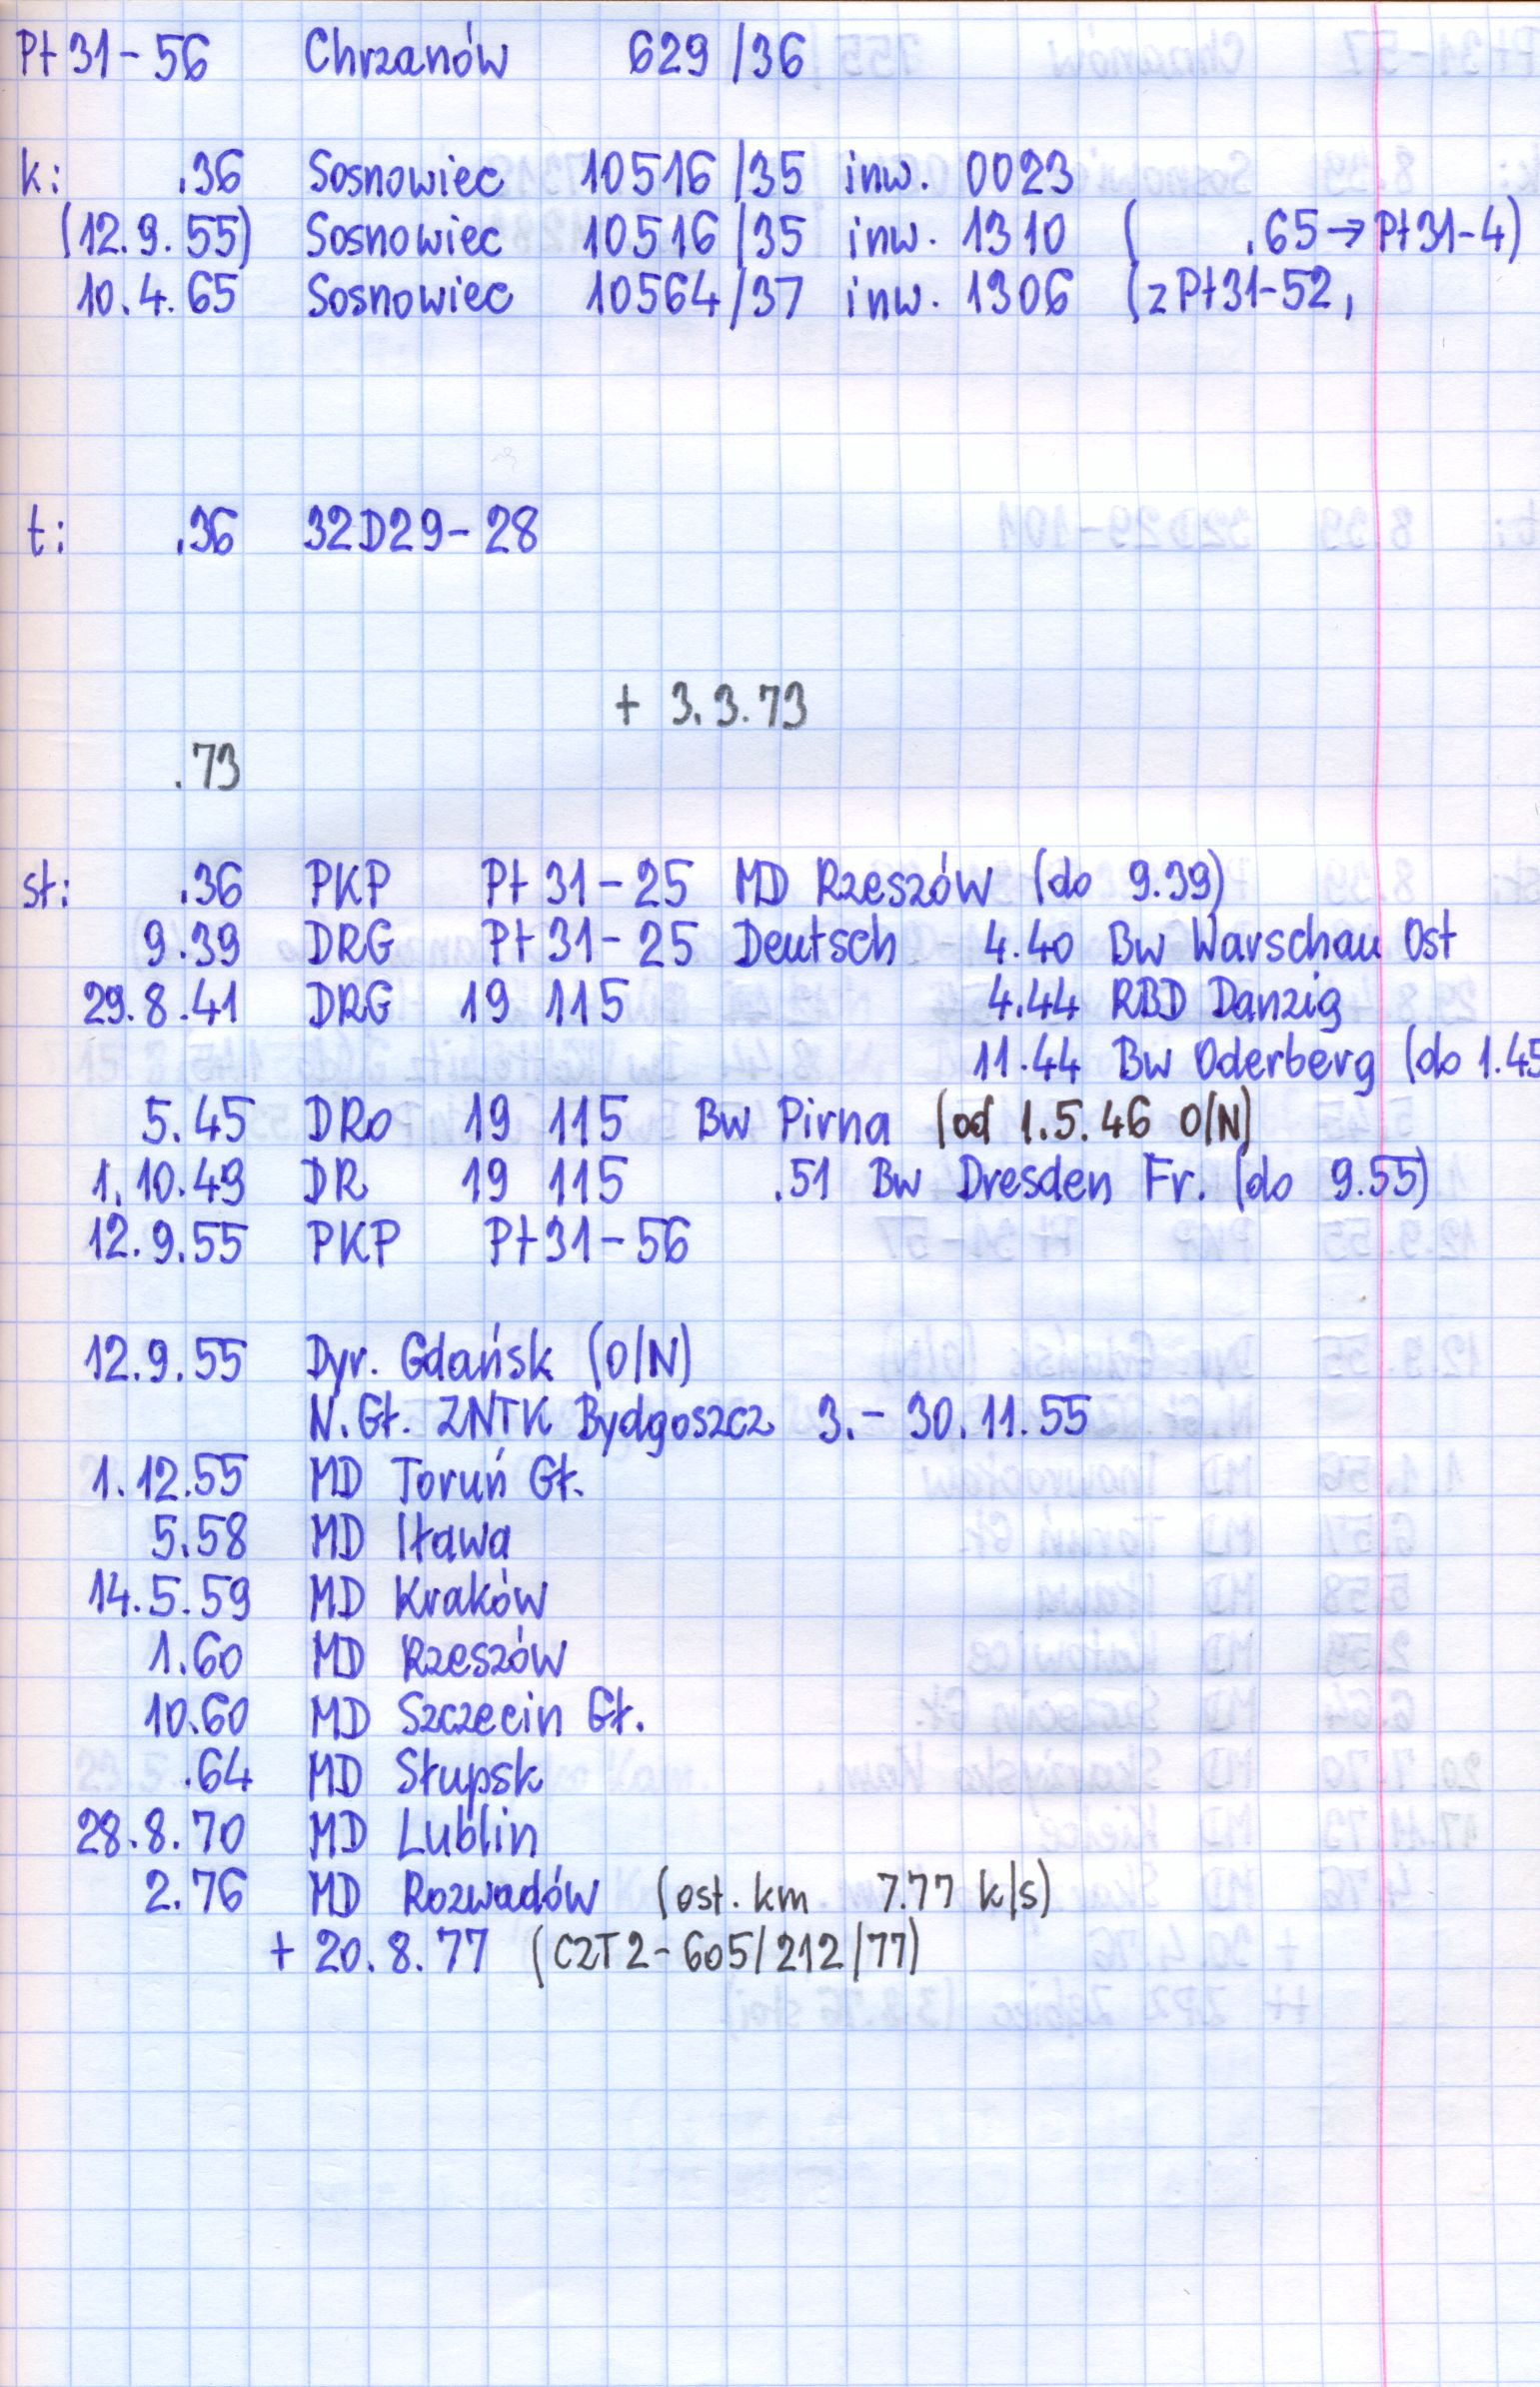 Pt 31-56 Chrzanów 629/36
k: .36 Sosnowiec 10516/35 inw. 0023
(12.9.55) Sosnowiec 10516/35 inw. 1310 ( .65→Pt31-4)
10.4.65 Sosnowiec 10564/37 inw. 1306 (z Pt31-52,
t: .36 32D29-28
+ 3.3.73
.73
st: .36 PKP Pt 31-25 MD Rzeszów (do 9.39)
9.39 DRG Pt 31-25 Deutsch 4.40 Bw Warschau Ost
29.8.41 DRG 19 115 4.44 RBD Danzig
11.44 Bw Oderberg (do 1.45
5.45 DRo 19 115 Bw Pirna (od 1.5.46 O/N)
1.10.49 DR 19 115 .51 Bw Dresden Fr. (do 9.55)
12.9.55 PKP Pt31-56
12.9.55 Dyr. Gdańsk (O/N)
N.Gł. ZNTK Bydgoszcz 3.- 30.11.55
1.12.55 MD Toruń Gł.
5.58 MD Iława
14.5.59 MD Kraków
1.60 MD Rzeszów
10.60 MD Szczecin Gł.
.64 MD Słupsk
28.8.70 MD Lublin
2.76 MD Rozwadów (ost. km 7.77 k/s)
+ 20.8.77 (CZT2-605/212/77)